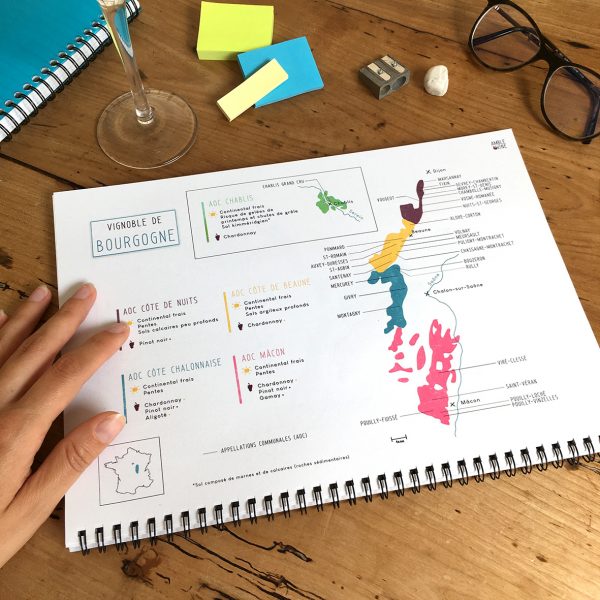 AMBLE
WINE
VIGNOBLE DE
BOURGOGNE
AOC CHABLIS
Continental frais
Risque de gelées de
printemps et chutes de grêle
Sol kimméridgien*
Chardonnay
CHABLIS GRAND CRU
Chablis
Serein
AOC CÔTE DE NUITS
Continental frais
Pentes
Sols calcaires peu profonds
Pinot noir
AOC CÔTE DE BEAUNE
Continental frais
Pentes
Sols argileux profonds
Chardonnay
AOC CÔTE CHALONNAISE
Continental frais
Pentes
Chardonnay
Pinot noir
Aligoté
AOC MÂCON
Continental frais
Pentes
Chardonnay
Pinot noir
Gamay
Dijon
MARSANNAY
FIXIN
GEVREY-CHAMBERTIN
MOREY-ST-DENIS
CHAMBOLLE-MUSIGNY
VOUGEOT
VOSNE-ROMANÉE
NUITS-ST-GEORGES
ALOXE-CORTON
Beaune
POMMARD
VOLNAY
ST-ROMAIN
MEURSAULT
AUXEY-DURESSES
PULIGNY-MONTRACHET
ST-AUBIN
CHASSAGNE-MONTRACHET
SANTENAY
BOUZERON
MERCUREY
RULLY
Saône
Chalon-sur-Saône
GIVRY
MONTAGNY
VIRÉ-CLESSÉ
SAINT-VÉRAN
Mâcon
POUILLY-LOCHÉ
POUILLY-VINZELLES
POUILLY-FUISSÉ
APPELLATIONS COMMUNALES (AOC)
*Sol composé de marnes et de calcaires (roches sédimentaires)